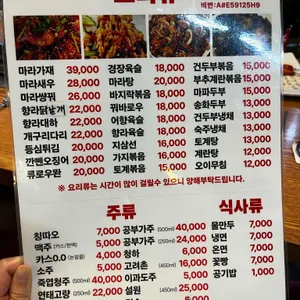 요리류
비번:A#E59125H9
마라가재 39,000
마라새우 28,000
마라쌍꿔 26,000
향라닭날개 22,000
향라대하 22,000
개구리다리 22,000
등심튀김 20,000
깐뻰오징어 20,000
류로우판 20,000
경장육슬 18,000
마라탕 18,000
바지락볶음 18,000
꿔바로우 18,000
어향육슬 18,000
향라육슬 18,000
지삼선 16,000
가지볶음 16,000
토계볶음 15,000
건두부볶음 15,000
부추계란볶음 15,000
마파두부 15,000
송화두부 13,000
건두부냉채 13,000
숙주냉채 13,000
토계탕 13,000
계란탕 12,000
오이무침 12,000
※ 요리류는 시간이 많이 걸릴수 있으니 양해부탁드립니다.
주류
칭따오 7,000
맥주 (카스/한맥) 5,000
카스0.0 (논알콜) 4,000
소주 5,000
죽엽청주 (500ml) 40,000
연태고량 (250ml) 22,000
공부가주 (500ml) 40,000
공부가주 (250ml) 24,000
청하 6,000
고려촌 (450ml) 16,000
이과두주 5,000
설원 (450ml) 25,000
식사류
물만두 7,000
냉면 7,000
온면 7,000
꽃빵 1,000
공기밥 1,000